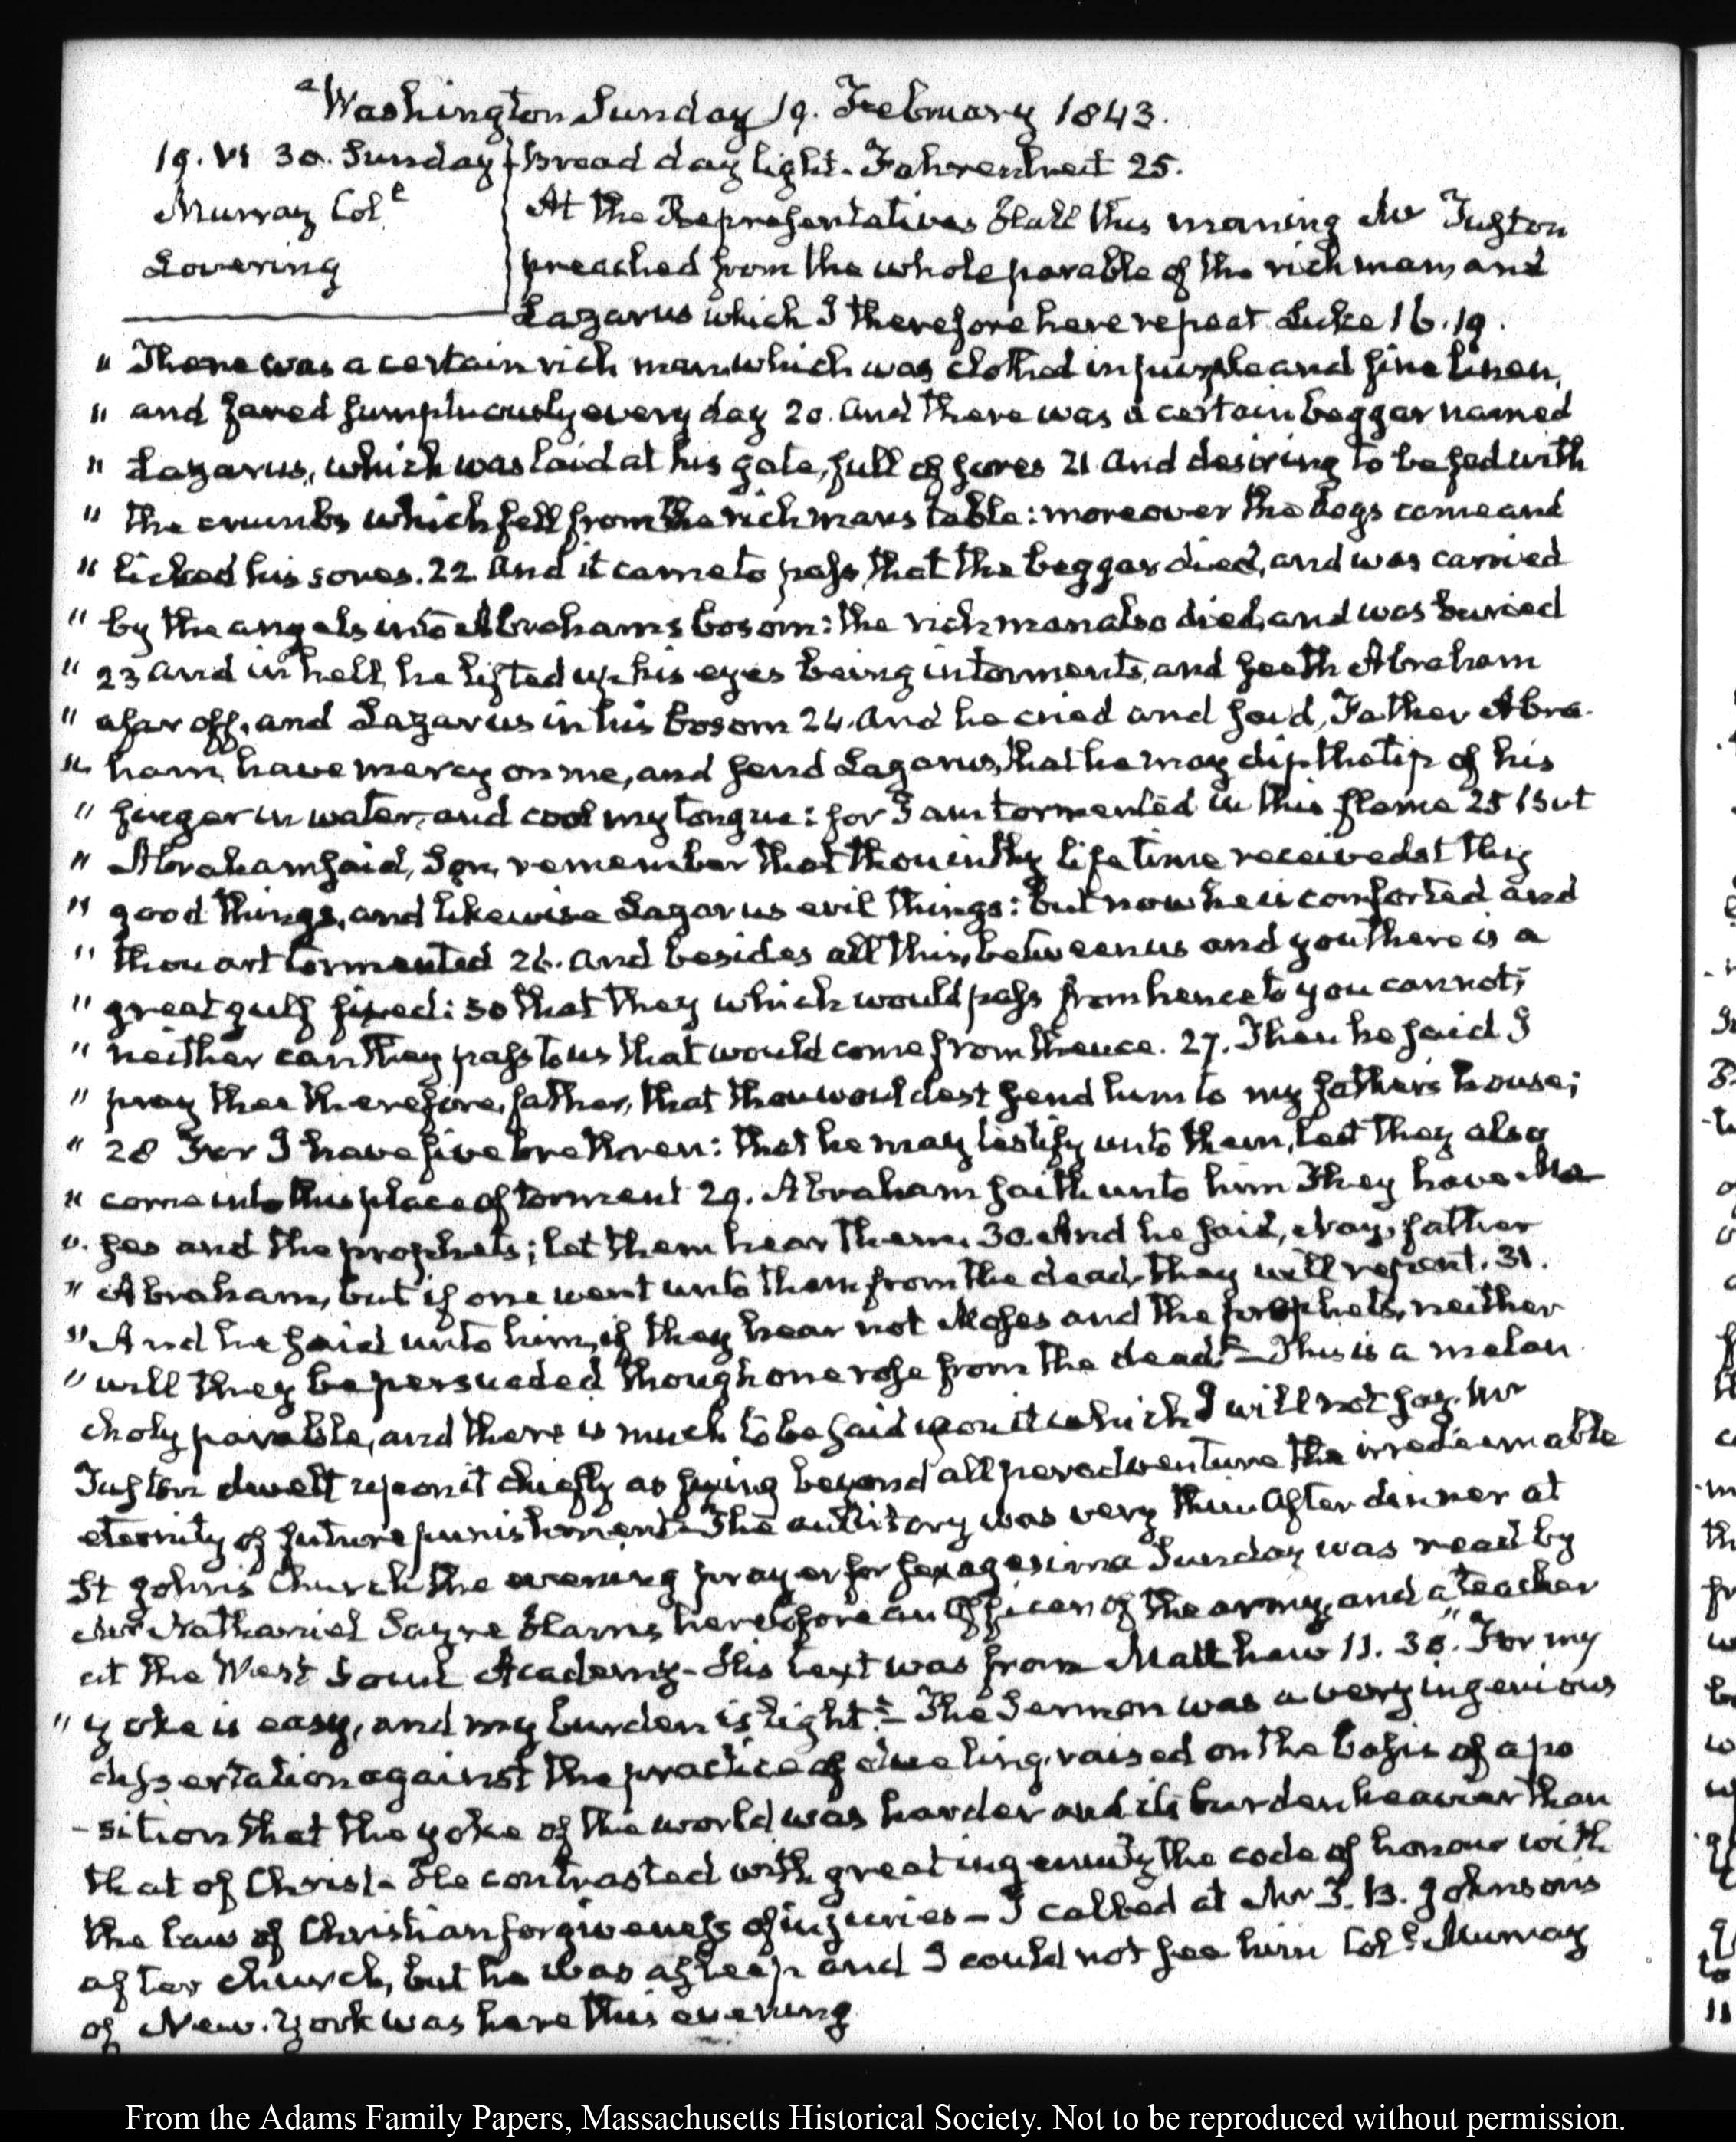 Washington Sunday 19. February 1843.
19. VI 30. Sunday
Murray Col.
Lovering
Broad day light. Fahrenheit 25.
At the Representatives Hall this morning Mr Tuston
preached from the whole parable of the rich man, and
Lazarus which I therefore here repeat Luke 16.19.
" There was a certain rich man, which was clothed in purple and fine linen,
" and fared sumptuously every day 20. And there was a certain beggar named
" Lazarus, which was laid at his gate, full of sores 21 And desiring to be fed with
" the crumbs which fell from the rich mans table: moreover the dogs came and
" licked his sores. 22. And it came to pass, that the beggar died, and was carried
" by the angels into Abrahams bosom: the rich man also died, and was buried
" 23 And in hell he lifted up his eyes being in torments, and seeth Abraham
" afar off, and Lazarus in his bosom 24. And he cried and said, Father Abra-
" ham, have mercy on me, and send Lazarus, that he may dip the tip of his
" finger in water, and cool my tongue: for I am tormented in this flame 25 But
" Abraham said, Son, remember that thou in thy life time receivedst thy
" good things, and likewise Lazarus evil things: but now he is comforted and
" thou art tormented 26. And besides all this, between us and you there is a
" great gulf fixed: so that they which would pass from hence to you cannot;
" neither can they pass to us that would come from thence. 27. Then he said I
" pray thee therefore, father, that thou wouldest send him to my father's house;
" 28 For I have five brethren: that he may testify unto them, lest they also
" come into this place of torment 29. Abraham saith unto him They have Mo-
" ses and the prophets; let them hear them. 30. And he said, Nay, father
" Abraham, but if one went unto them from the dead, they will repent. 31.
" And he said unto him, if they hear not Moses and the prophets, neither
" will they be persuaded though one rose from the dead" – This is a melan
choly parable, and there is much to be said upon it which I will not say. Mr
Tuston dwelt upon it chiefly as fixing beyond all peradventure the irredeemable
eternity of future punishment – The auditory was very thin. After dinner at
St John's Church the evening prayer for sexagesima Sunday was read by
Mr Nathaniel Sayre Harris heretofore an Officer of the army, and a teacher
at the West Point Academy – His text was from Matthew 11. 30. "For my
" yoke is easy, and my burden is light." – The Sermon was a very ingenious
dissertation against the practice of duelling, raised on the basis of a po
- sition that the yoke of the world was harder and its burden heavier than
that of Christ – He contrasted with great ingenuity the code of honour with
the law of Christian forgiveness of injuries – I called at Mr I. B. Johnson's
after church, but he was asleep and I could not see him Col. Murray
of New-York was here this evening
From the Adams Family Papers, Massachusetts Historical Society. Not to be reproduced without permission.